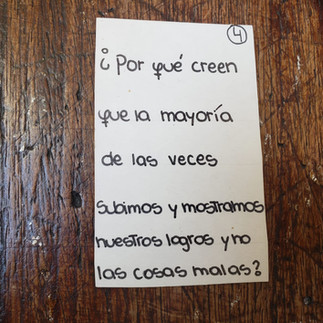 4
¿Por qué creen
que la mayoría
de las veces
subimos y mostramos
nuestros logros y no
las cosas malas?